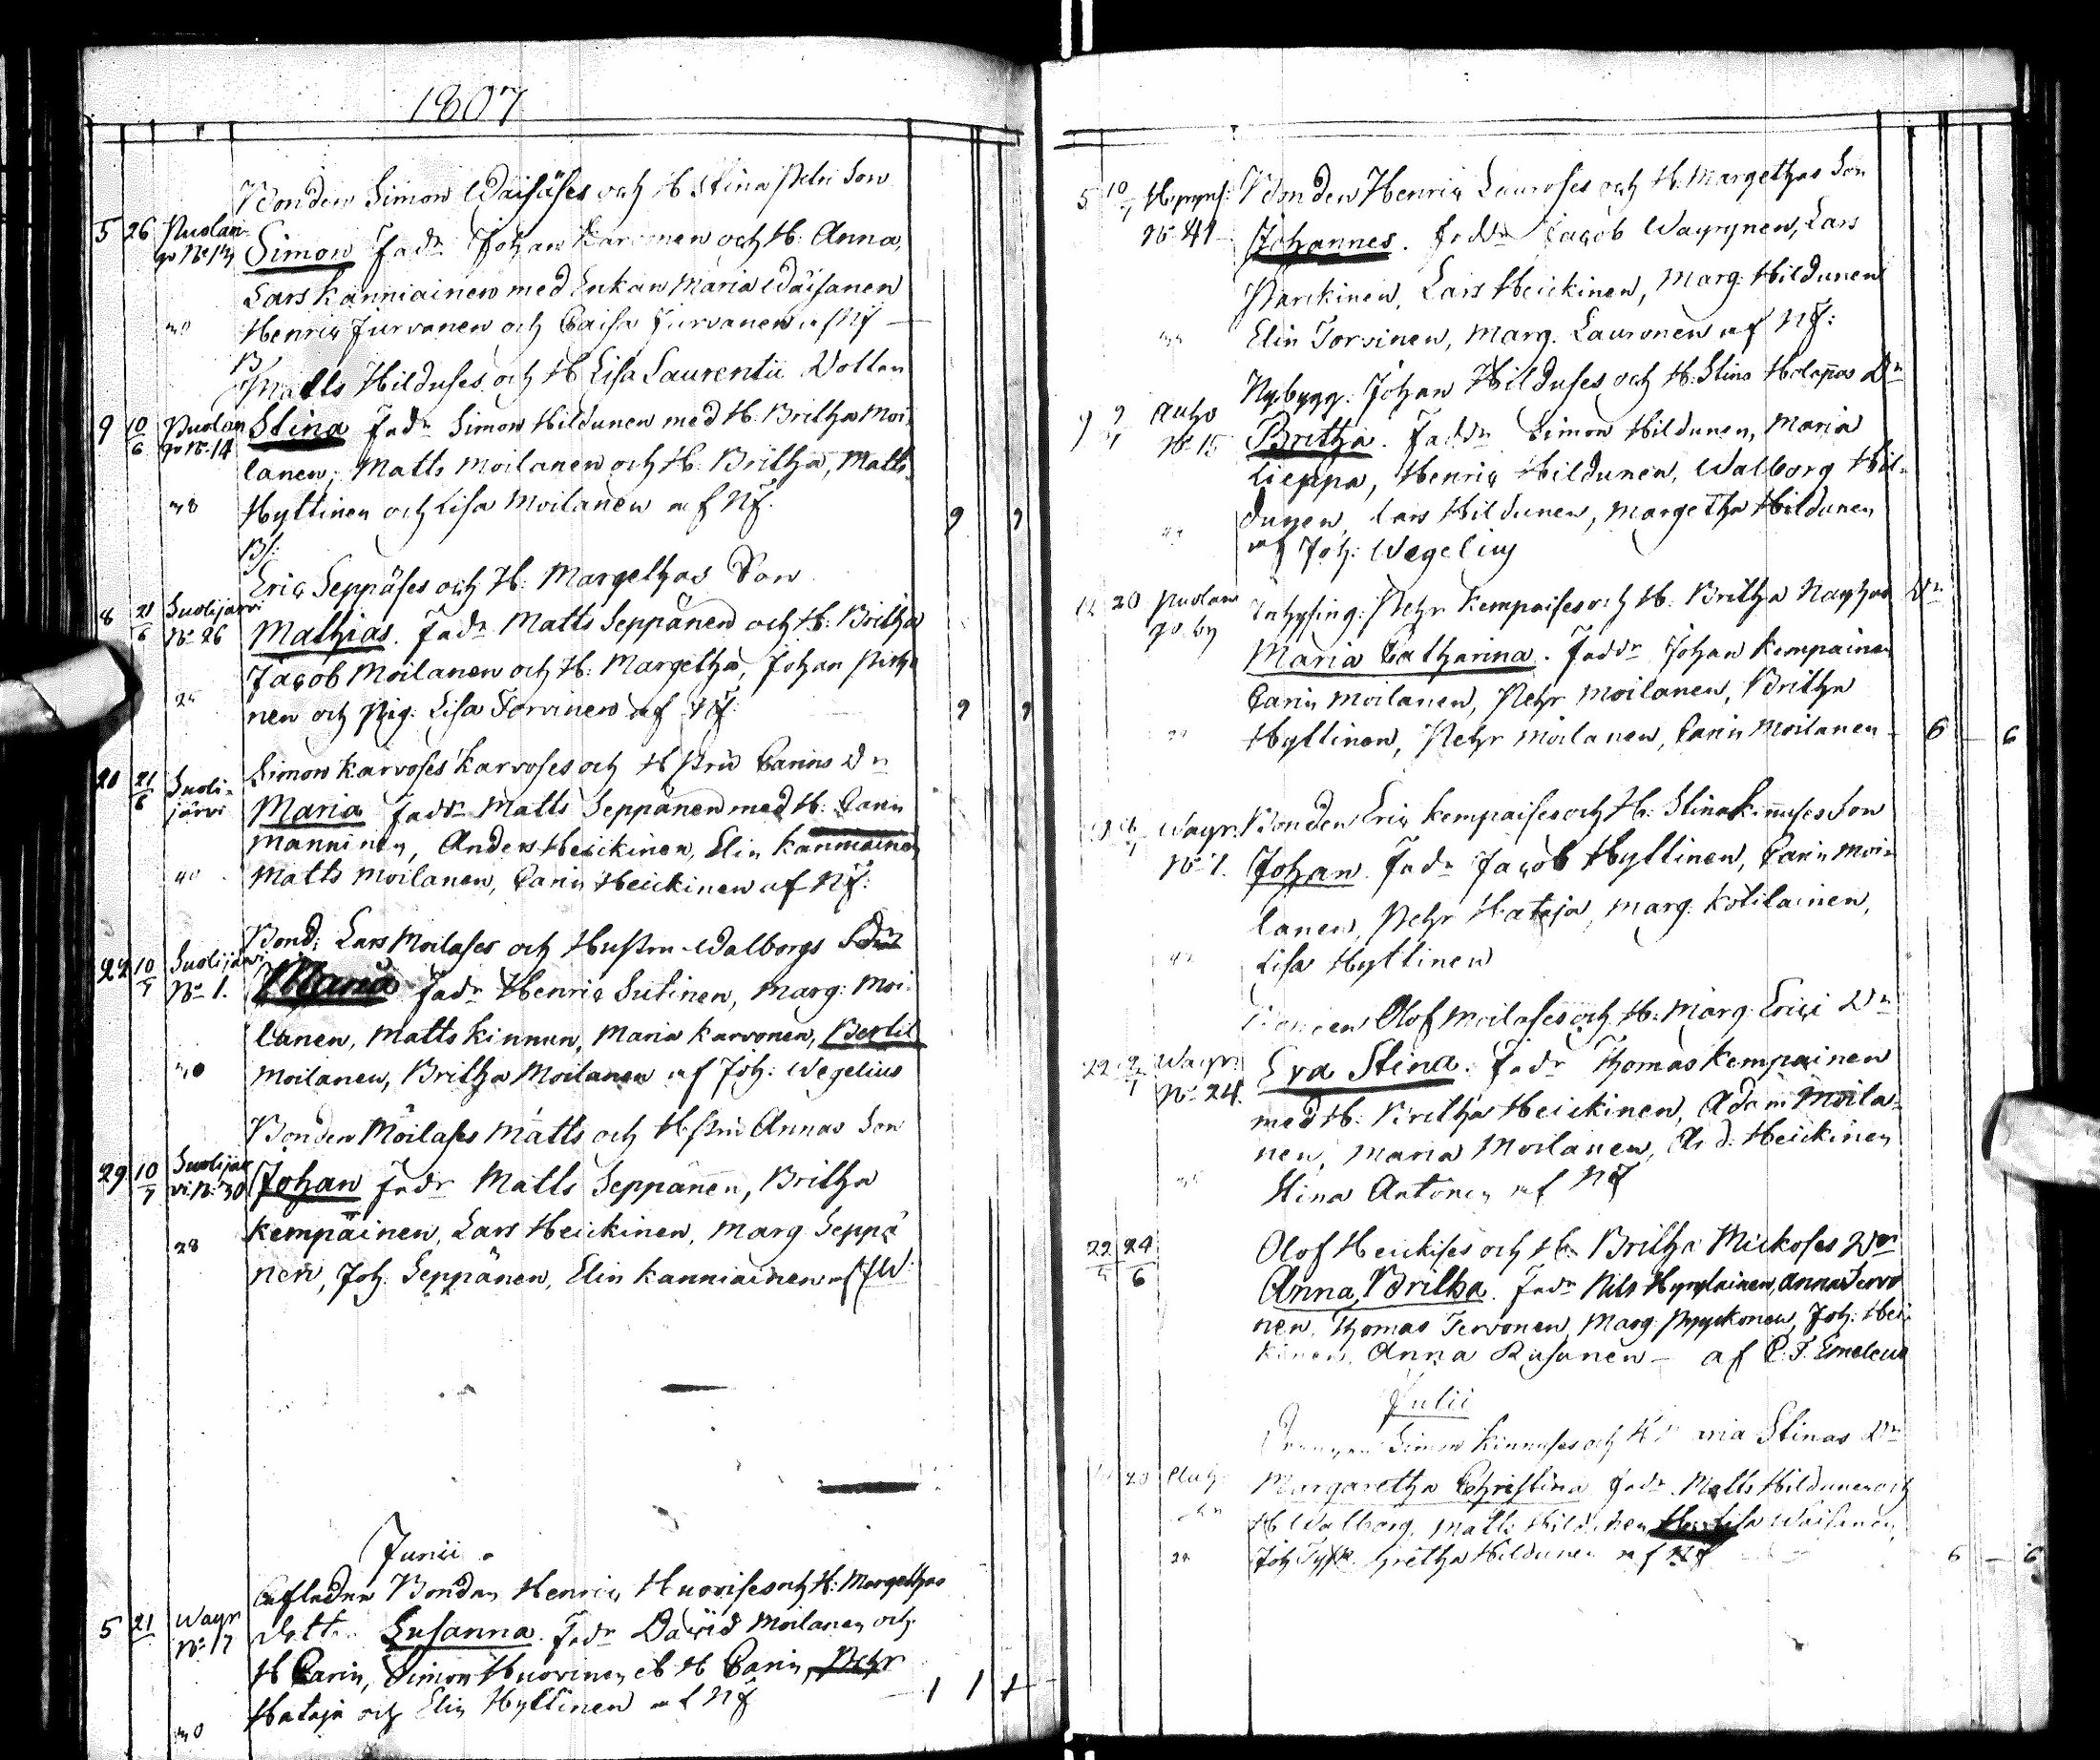 1807
Bonden Simon Wäisäses och H Stina Petri Son
5 26 Puolan-
go No 13 Simon Fadr Johan Karvonen och H: Anna,
Lars Kanniainen med Enkan Maria Wäisänen
30 Henric Jurvanen och Caisa Jurvanen af NJ
B
Matts Hilduses och H Lisa Laurentii Dotter
9 10/6 Puolan Stina Fadr Simon Hildunen med H. Britha Moi
go No 14
lanen, Matts Moilanen och H: Britha, Matts
38 Hyttinen och Lisa Moilanen af NJ. 9 9
B:
Eric Seppäses och H: Margethas Son
8 21/6 Suolijarvi
No 26 Mathias. Fadr Matts Seppänen och H: Britha
Jacob Moilanen och H: Margetha, Johan
25 nen och Pig: Lisa Torvinen af NJ: 9 9
Simon Karvoses Karvoses och Hstru Carins Dr
20 21/6 Suoli-
järvi Maria Fadr Matts Seppänen med H: Carin
Manninen, Anders Heickinen, Elin Kanniainen
40 Matts Moilanen, Carin Heickinen af NJ:
Bond: Lars Moilases och Hustru Walborgs
22 10/7 Suolijarvi
No 1. Maria Fadr Henric Sutinen, Marg: Moi-
lanen, Matts Kinnun, Maria Karvonen, Bertil
Moilanen, Britha Moilanen af Joh: Wegelius
Bonden Moilases Matts och Hstru Annas Son
29 10/7 Suolijar
vi No 30 Johan Fadr Matts Seppänen, Britha
Kempainen, Lars Heickinen, Marg Seppä
28 nen, Joh. Seppänen, Elin Kanniainen af JW.
Junii
Afledne Bonden Henric Huovises och H: Margethas
5 21 Wayr
No 17 Dotter Susanna. Fadr David Moilanen och
H Carin, Simon Huovinen & H Carin, Pehr
30 Hataja och Elin Hyttinen af NJ 1 1 1
5 10/7 Bonden Henric Lauroses och H: Margethas Son
No 41 Johannes. Faddr Jacob Wayrynen, Lars
Parckinen, Lars Heickinen, Marg: Hildunen
Elin Torvinen, Marg. Lauronen af NJ:
Nybygg: Johan Hilduses och H: Stina Holapas Dr
9 9/7 Autio
No 15 Britha. Faddr Simon Hildunen, Maria
Lieppa, Henric Hildunen, Walborg Hil-
dunen, Lars Hildunen, Margetha Hildunen
af Joh: Wegelius
12 20 Puolan
go by Inhysing: Pehr Kempaises och H: Britha Dr
Maria Catharina. Faddr Johan Kempainen
Carin Moilanen, Pehr Moilanen, Britha
Hyttinen, Pehr Moilanen, Carin Moilanen 6 6
Wayr. Bonden Eric Kempaises och H: Stina Kinnuses Son
No 7. Johan. Fadr Jacob Hyttinen, Carin Moi-
lanen, Pehr Hataja, Marg. Kotilainen,
Lisa Hyttinen
Bonden Olof Moilases och H: Marg: Erici Dr
22 Wayr:
No 24. Eva Stina. Fadr Thomas Kempainen
med H: Britha Heickinen, Adam Moila-
nen, Maria Moilanen, And: Heickinen
Stina Antonen af NJ
22 24/6 Olof Heickises och H: Britha Mickoses Dr
Anna Britha. Fadr Nils Hyrylainen, Anna Tervo
nen, Thomas Tervonen, Marg: Pyyckonen, Joh. Hei-
kinen, Anna Rusanen — af C. F. Emeleus
Julii
Simon Kinnuses och Stinas Dr
20 Margaretha Christina Fadr Matts Hildunen och
H Walborg, Matts Lisa Waisanen,
Joh Gretha Hildunen af NJ 6 — 6